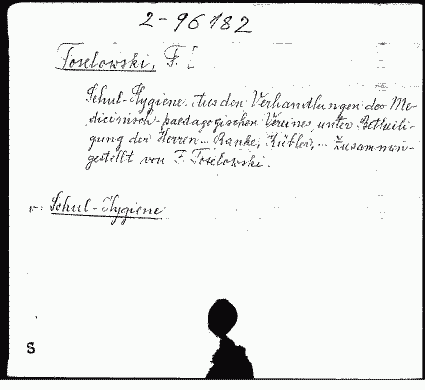 2-96182
Toselowski, F.
Schul-Hygiene. Aus den Verhandlungen des Me-
dicinisch-paedagogischen Vereines unter Betheili-
gung der Herren... Ranke, Kübler, ... zusammen-
gestellt von F. Toselowski.
v. Schul-Hygiene
S